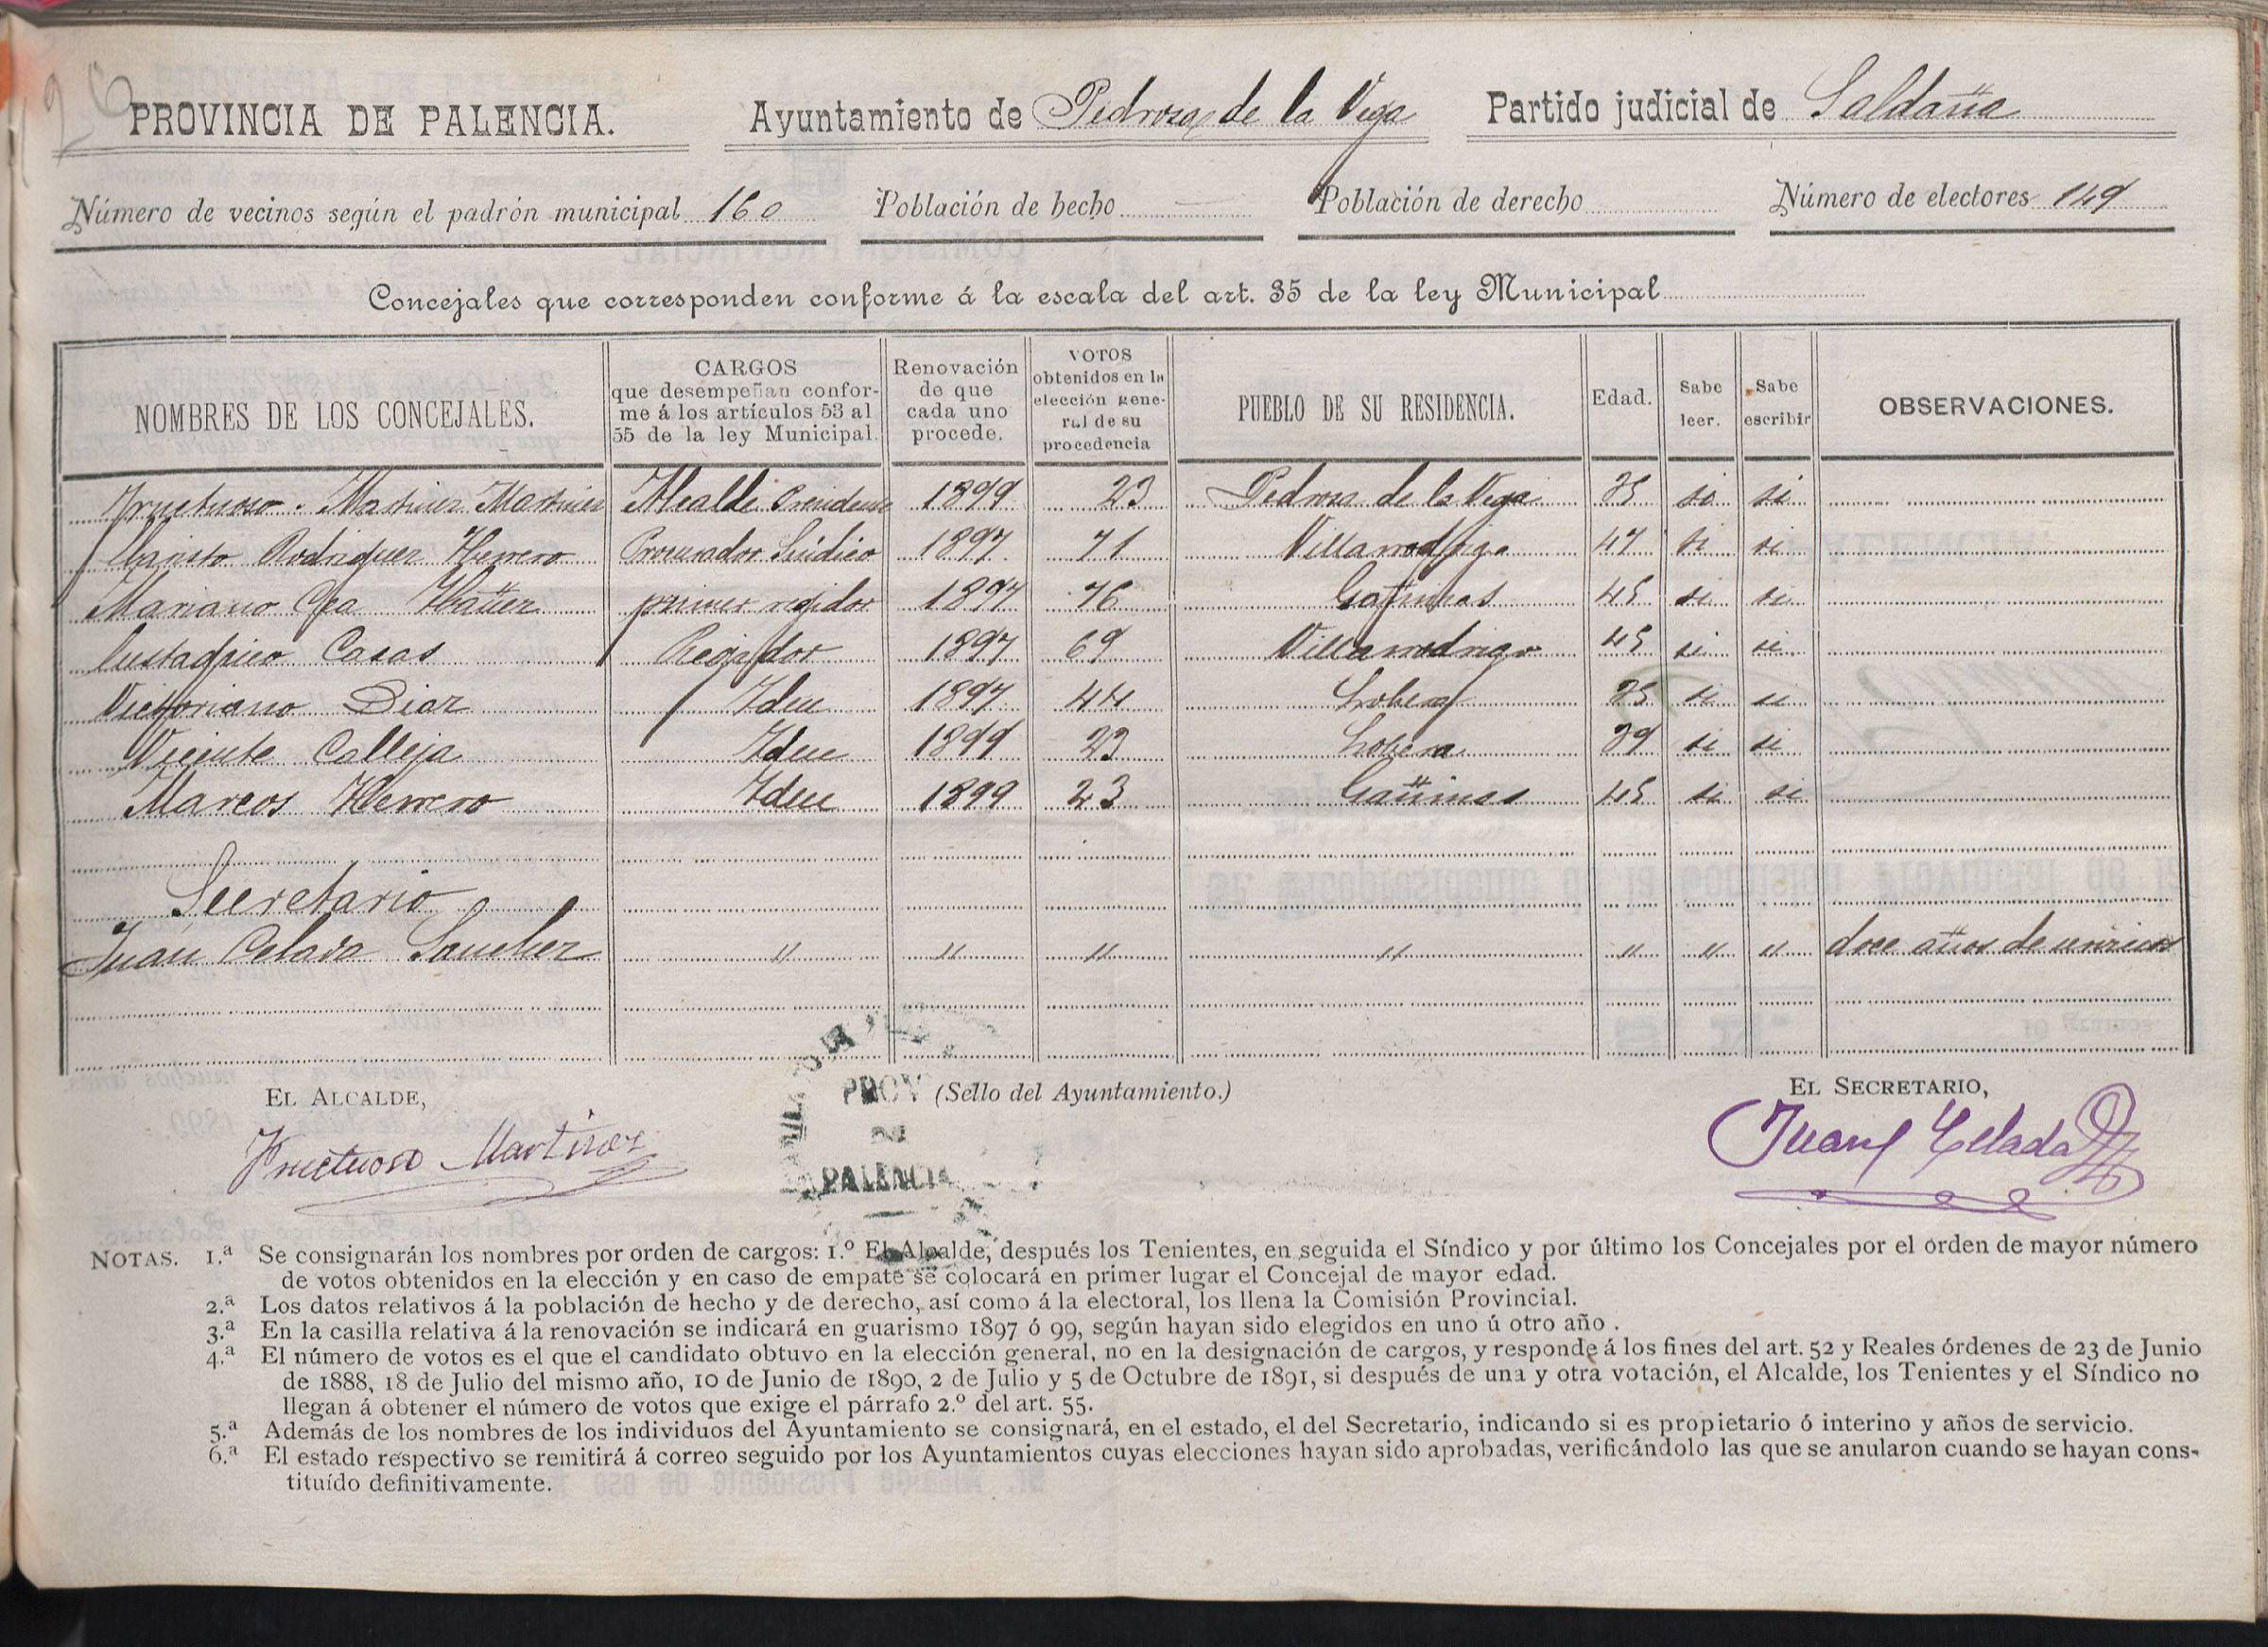 26
PROVINCIA DE PALENCIA. Ayuntamiento de Pedrosa de la Vega Partido judicial de Saldaña
Número de vecinos según el padrón municipal 160 Población de hecho Población de derecho Número de electores 149
Concejales que corresponden conforme á la escala del art. 35 de la ley Municipal
NOMBRES DE LOS CONCEJALES. CARGOS que desempeñan conforme á los artículos 53 al 55 de la ley Municipal. Renovación de que cada uno procede. VOTOS obtenidos en la elección general de su procedencia PUEBLO DE SU RESIDENCIA. Edad. Sabe leer. Sabe escribir OBSERVACIONES.
Fructuoso Martinez Martinez Alcalde Presidente 1899 23 Pedrosa de la Vega si si
Rodriguez Herrero Procurador Sindico 1897 71 Villarrodrigo 47 si si
Mariano Ibañez primer regidor 1897 76 Gañinas 45 si si
Eustaquio Casas Regidor 1897 69 Villarrodrigo 45 si si
Victoriano Diez Idem 1897 44 Lobera si si
Vicente Calleja Idem 1899 23 Lobera 39 si si
Marcos Herrero Idem 1899 23 Gañinas 45 si si
Secretario
Juan Celada Sanchez " " " " " " " doce años de
EL ALCALDE, (Sello del Ayuntamiento.) EL SECRETARIO,
PROV
DE
PALENCIA
Fructuoso Martinez Juan Celada
NOTAS. 1.ª Se consignarán los nombres por orden de cargos: 1.º El Alcalde, después los Tenientes, en seguida el Síndico y por último los Concejales por el orden de mayor número
de votos obtenidos en la elección y en caso de empate se colocará en primer lugar el Concejal de mayor edad.
2.ª Los datos relativos á la población de hecho y de derecho, así como á la electoral, los llena la Comisión Provincial.
3.ª En la casilla relativa á la renovación se indicará en guarismo 1897 ó 99, según hayan sido elegidos en uno ú otro año .
4.ª El número de votos es el que el candidato obtuvo en la elección general, no en la designación de cargos, y responde á los fines del art. 52 y Reales órdenes de 23 de Junio
de 1888, 18 de Julio del mismo año, 10 de Junio de 1890, 2 de Julio y 5 de Octubre de 1891, si después de una y otra votación, el Alcalde, los Tenientes y el Síndico no
llegan á obtener el número de votos que exige el párrafo 2.º del art. 55.
5.ª Además de los nombres de los individuos del Ayuntamiento se consignará, en el estado, el del Secretario, indicando si es propietario ó interino y años de servicio.
6.ª El estado respectivo se remitirá á correo seguido por los Ayuntamientos cuyas elecciones hayan sido aprobadas, verificándolo las que se anularon cuando se hayan cons-
tituído definitivamente.